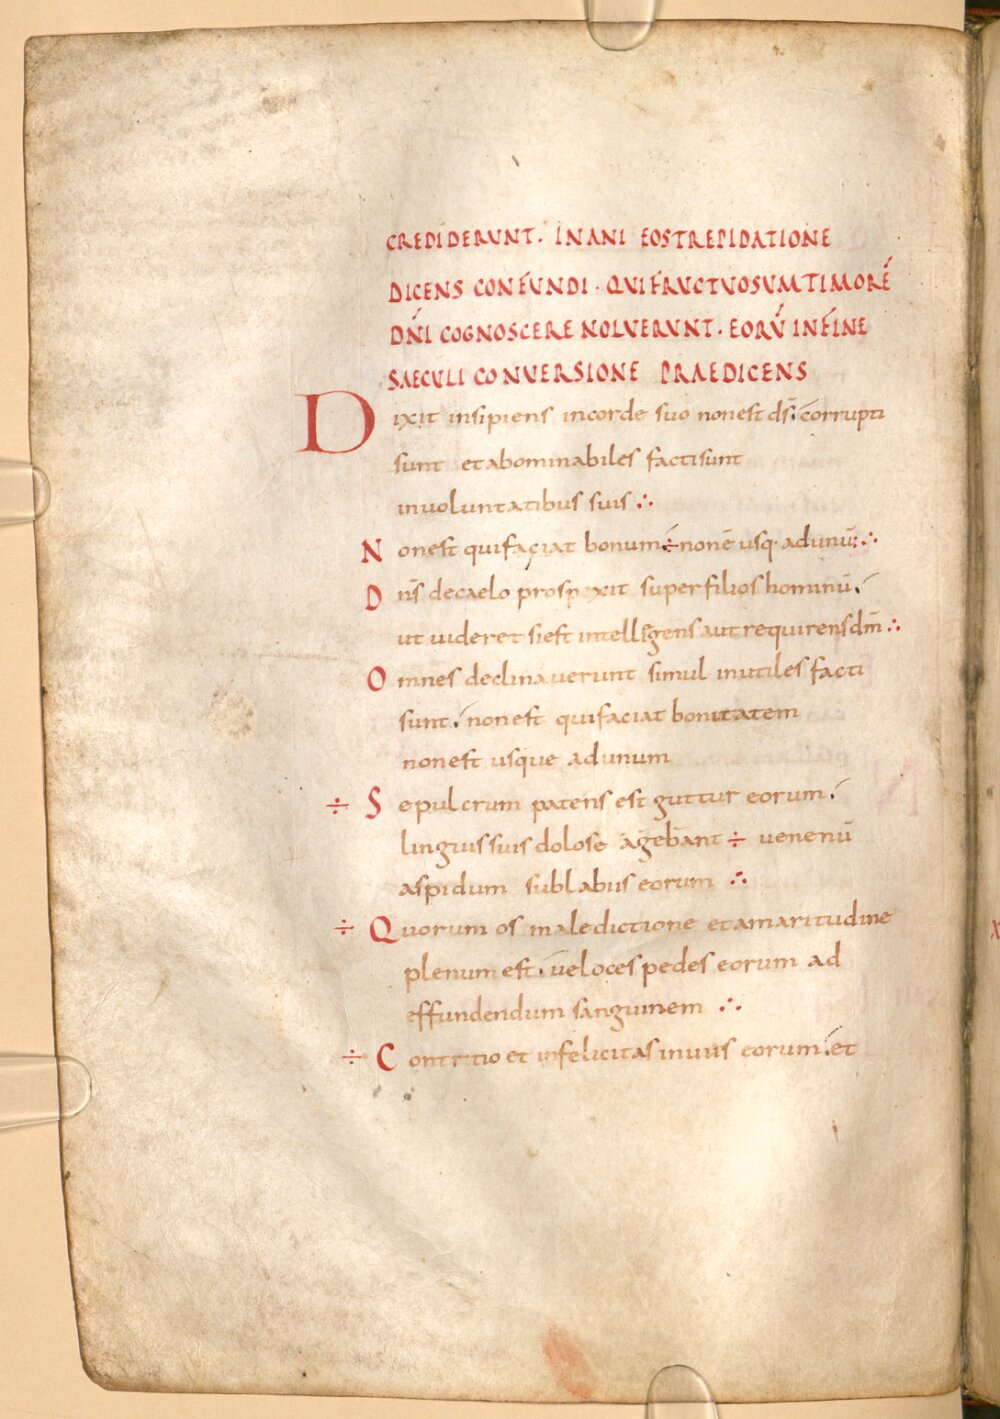 CREDIDERUNT. INANI EOS TREPIDATIONE
DICENS CONFUNDI. QUI FRUCTUOSUM TIMORĒ
DN̄I COGNOSCERE NOLUERUNT. EORŪ IN FINE
SAECULI CONVERSIONE PRAEDICENS
Dixit insipiens in corde suo non est ds̄. corrupti
sunt et abominabiles facti sunt
in voluntatibus suis ∴
Non est qui faciat bonum ÷ non ē usq. ad unū: ∴
Dn̄s de caelo prospexit super filios hominū.
ut uideret si est intellegens aut requirens dm̄ ∴
Omnes declinaverunt simul inutiles facti
sunt. non est qui faciat bonitatem
non est usque ad unum
÷ Sepulcrum patens est guttur eorum.
linguis suis dolose agebant ÷ venenū
aspidum sub labiis eorum ∴
÷ Quorum os maledictione et amaritudine
plenum est. veloces pedes eorum ad
effundendum sanguinem ∴
÷ Contritio et infelicitas in viis eorum. et